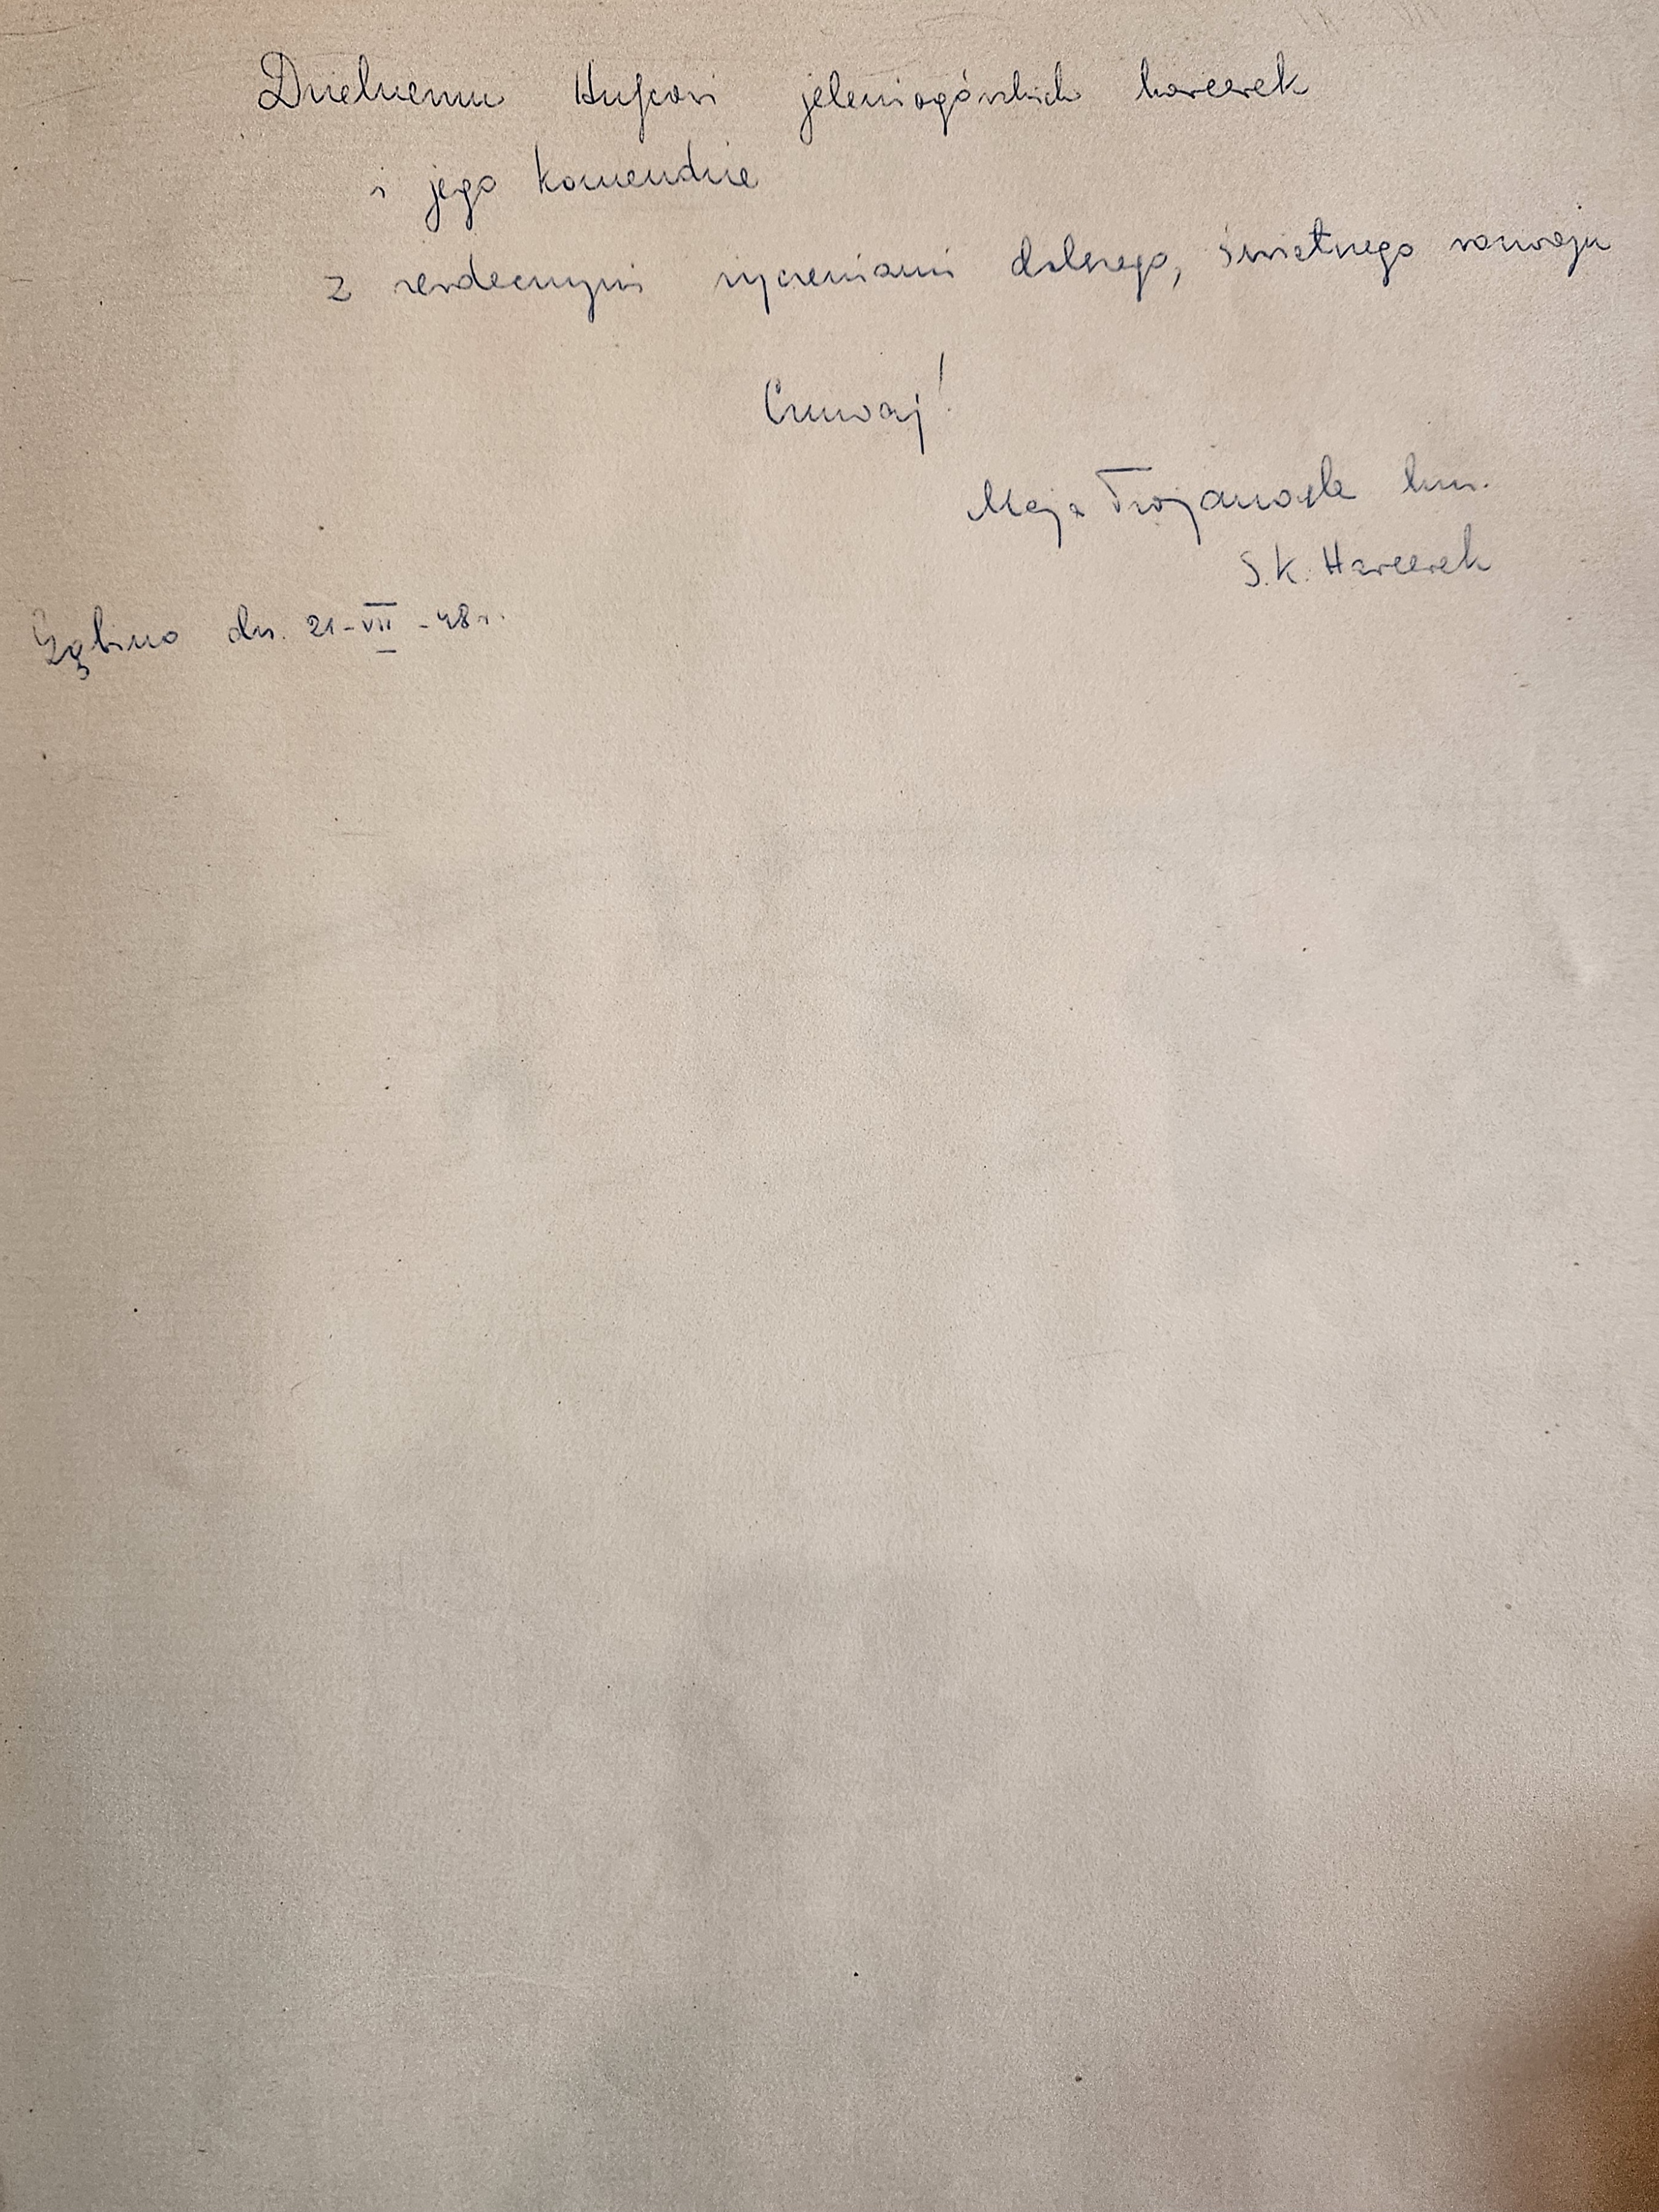 Dzielnemu Hufcowi jeleniogórskich harcerek
i jego komendzie
z serdecznymi życzeniami dalszego, świetnego rozwoju
Czuwaj!
Maja Trojanowska hm.
S.K. Harcerek
Gąbino dn. 21-VII-48 r.